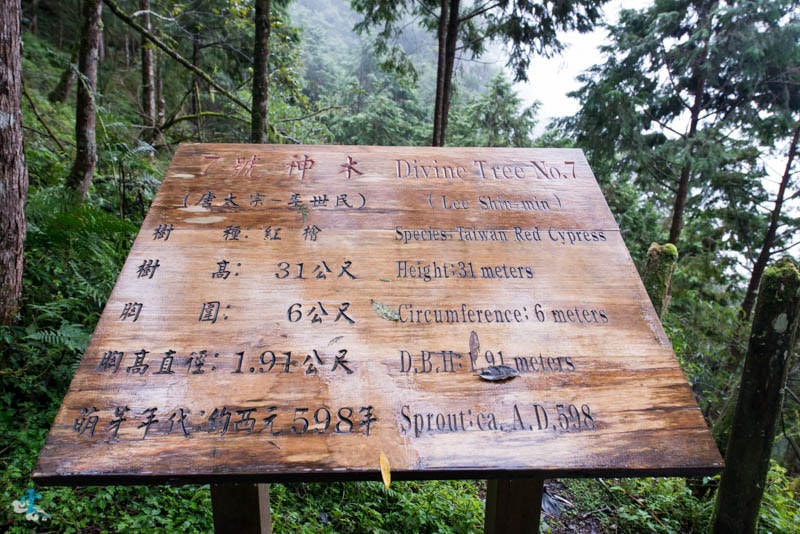 7號神木 Divine Tree No.7
(唐太宗-李世民) (Lee Shih-min)
樹種:紅檜 Species:Taiwan Red Cypress
樹高:31公尺 Height:31 meters
胸圍:6公尺 Circumference:6 meters
胸高直徑:1.91公尺 D.B.H:1.91 meters
萌芽年代:約西元598年 Sprout:ca. A.D.598